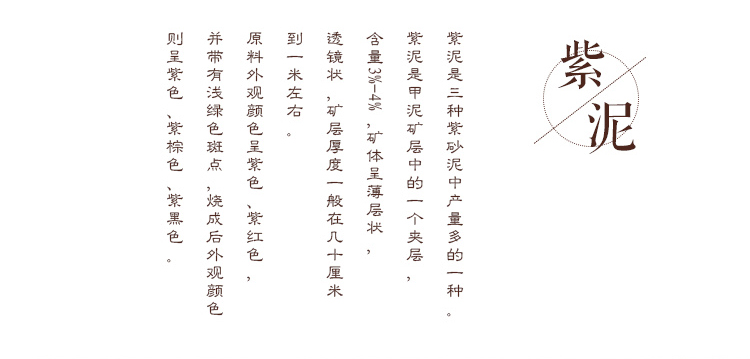 紫泥
紫泥是三种紫砂泥中产量多的一种。
紫泥是甲泥矿层中的一个夹层,
含量3%-4%,矿体呈薄层状,
透镜状,矿层厚度一般在几十厘米
到一米左右。
原料外观颜色呈紫色、紫红色,
并带有浅绿色斑点,烧成后外观颜色
则呈紫色、紫棕色、紫黑色。